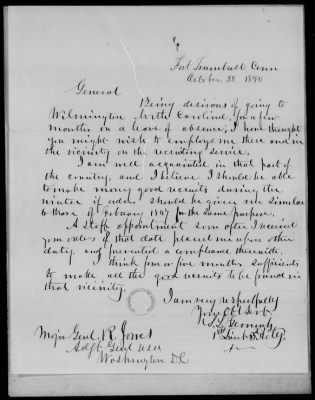 Fort Trumbull Conn
October 28 1850
General
Being desirous of going to
Wilmington North Carolina, for a few
months on a leave of absence, I have thought
you might wish to employ me there and in
the vicinity on the recruiting service.
I am well acquainted in that part of
the country, and I believe I should be able
to make many good recruits during the
winter if orders should be given me similar
to those of February 1847 for the same purpose.
A Staff appointment soon after I received
your orders of that date placed me upon other
duty and prevented a compliance therewith.
I think four or five months sufficient
to make all the good recruits to be found in
that vicinity.
I am very respectfully
Your Obt Servt
1st Lieut
Major Genl R. Jones
Adjt Genl USA
Washington D.C.